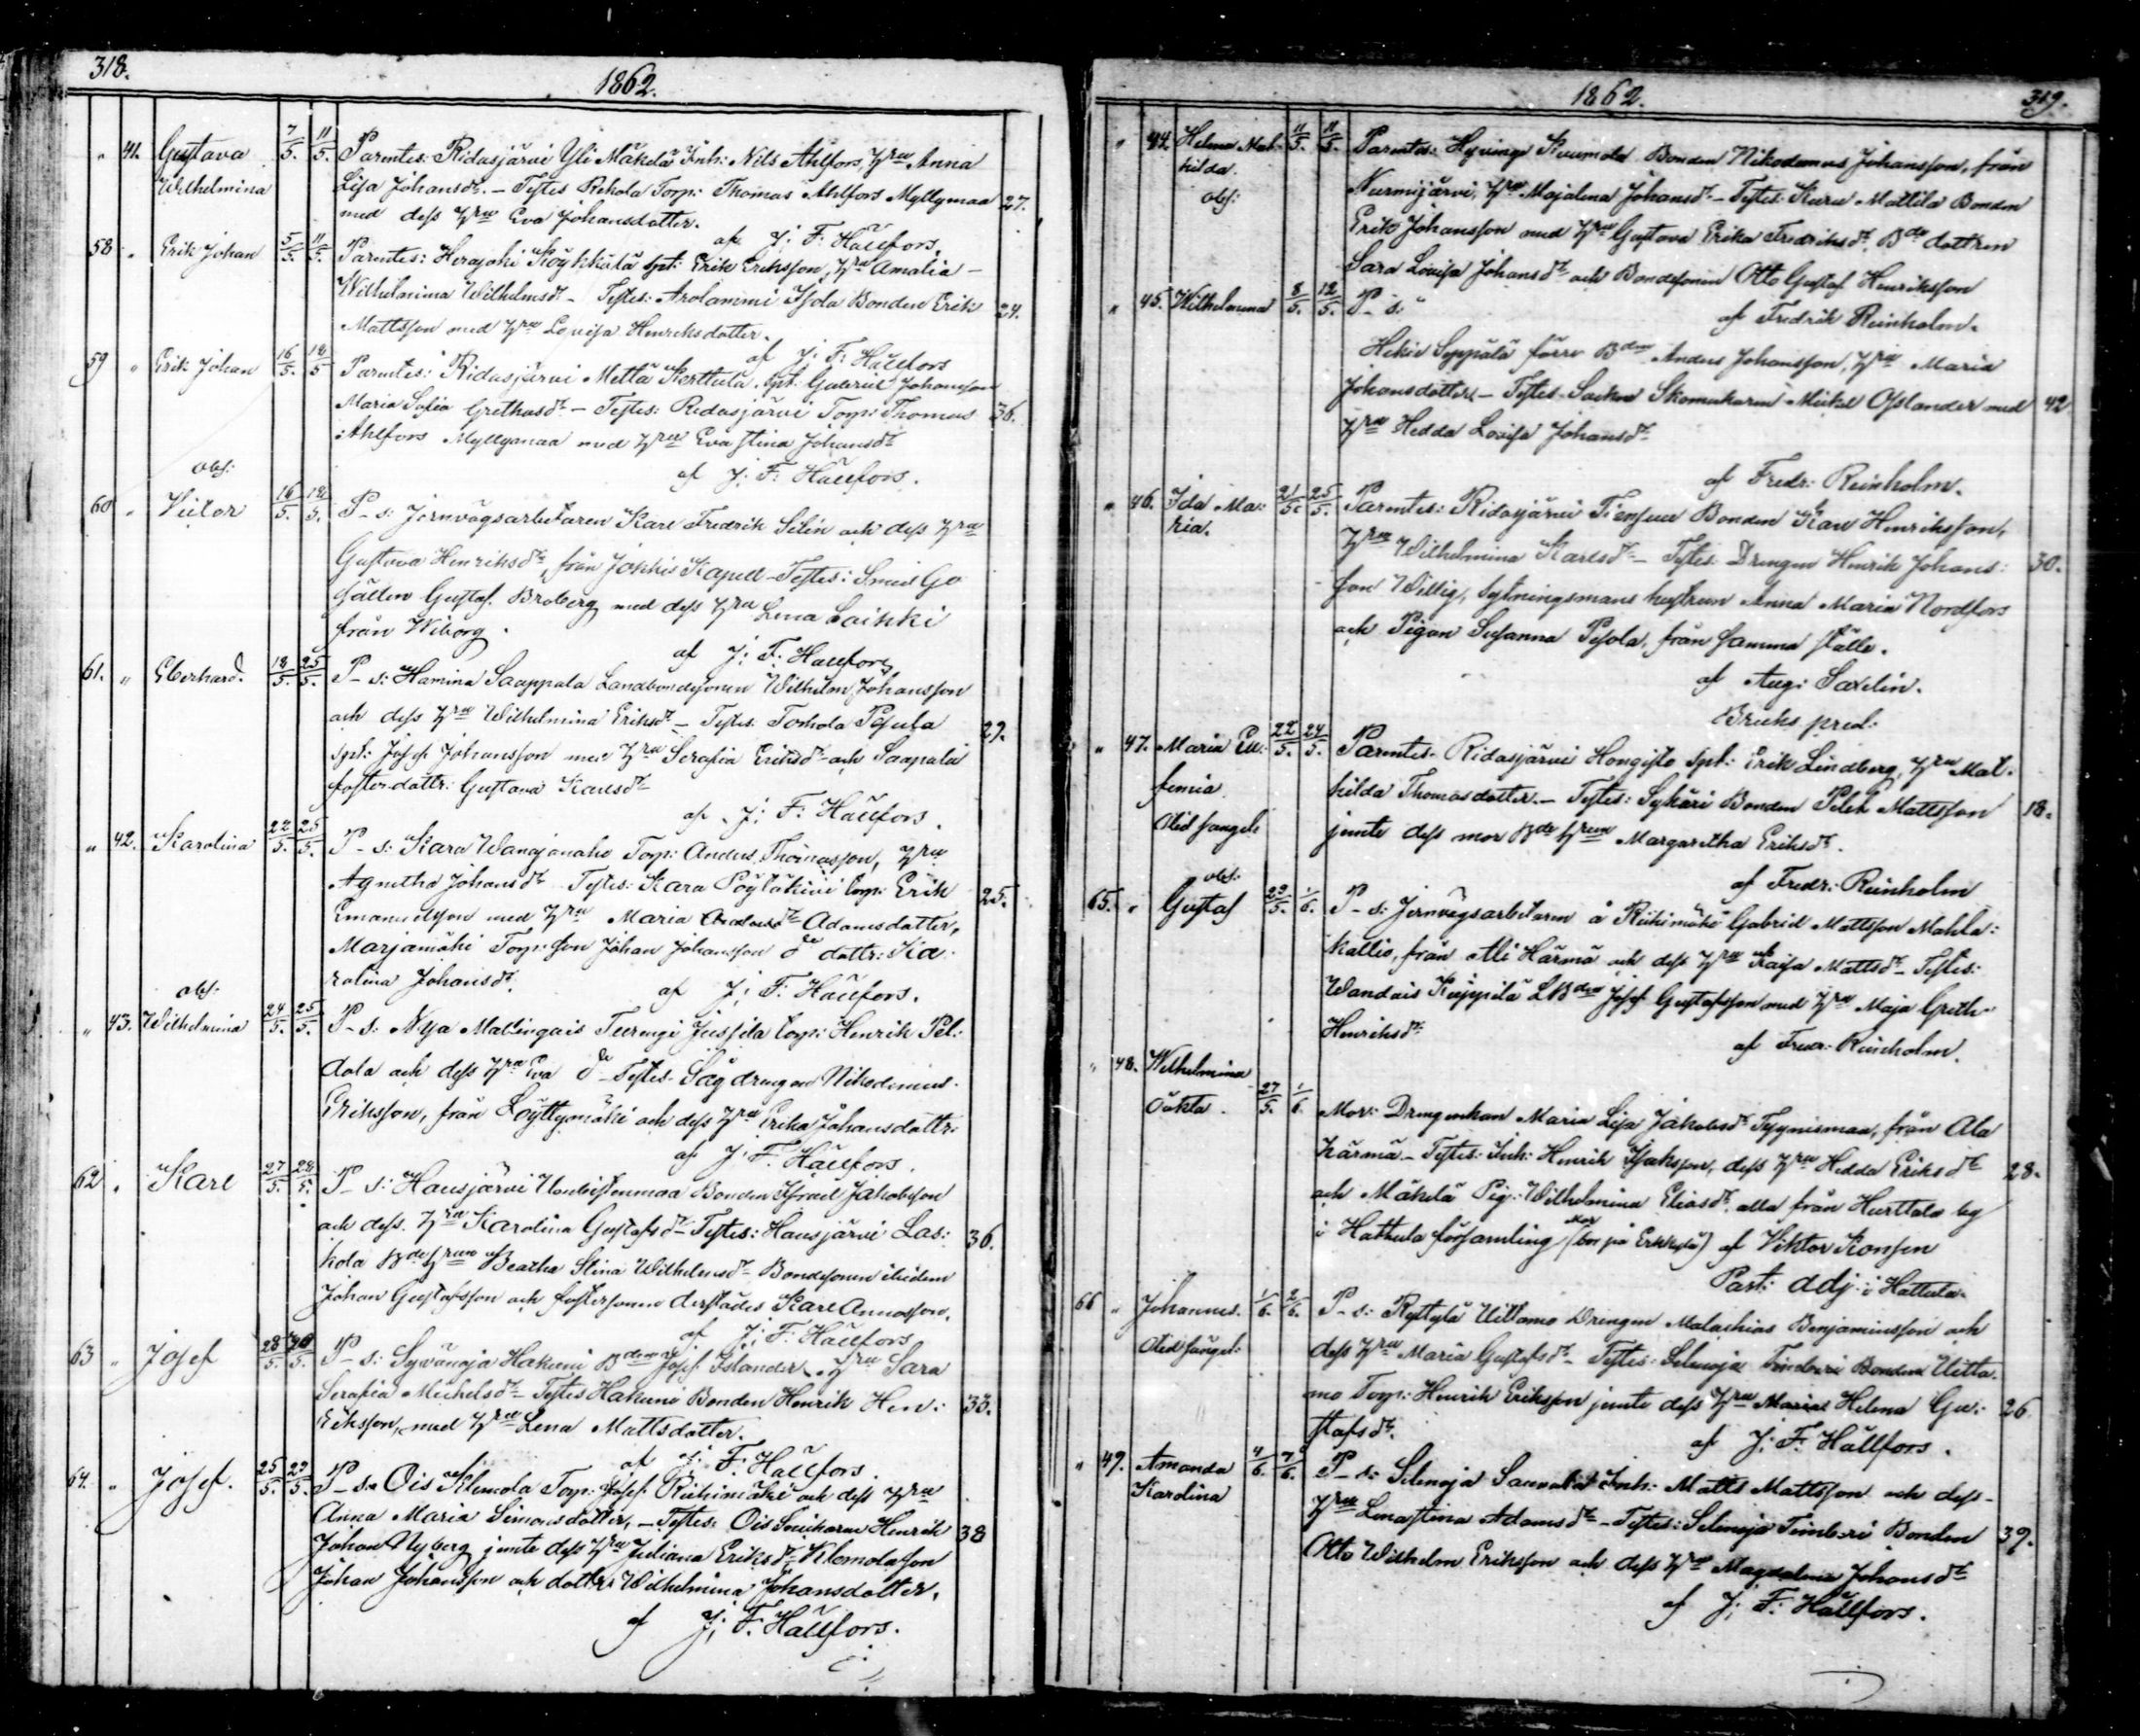 318.
1862.
" 41. Gustava 7/5. 11/5. Parentes: Ridasjärvi Yli Mäkelä Inh: Nils Ahlfors, Hru Anna
Wilhelmina Lisa Johansdr. – Testes Rekola Torp: Thomas Ahlfors Myllymaa 27.
med dess Hru Eva Johansdotter.
af J. F. Hällfors.
58 " Erik Johan 5/5. 11/5. Parentes: Herajoki Köykkälä Spt: Erik Eriksson, Hru Amalia –
Wilhelmina Wilhelmsdr – Testes: Arolammi Isola Bonden Erik 24.
Mattsson med Hru Lovisa Henriksdotter.
af J. F. Hällfors
59 " Erik Johan 16/5. 18/5 Parentes: Ridasjärvi Mettä Kerttula Spt: Gabriel Johansson
Maria Sofia Grethasdr – Testes: Ridasjärvi Torp: Thomas 36.
Ahlfors Myllymaa med Hru Eva Stina Johansdr
obs: af J. F. Hällfors.
60 " Victor 16/5. 18/5. P–s: Jernvägsarbetaren Karl Fredrik Selin och dess Hru
Gustava Henriksdr, från Jokkis Kapell – Testes: Smed Ge
sällen Gustaf Broberg med dess Hru Lena Laihki
från Wiborg.
af J. F. Hällfors
61. " Eberhard. 18/5. 25/5. P–s: Hamina Saappala Landbondesonen Wilhelm Johansson
och dess Hru Wilhelmina Eriksdr – Testes: Torhola Pesula 29.
Spt: Josef Johansson med Hru Serafia Eriksdr och Saapala
fosterdottr: Gustava Karlsdr
af J. F. Hällfors.
" 42. Karolina 22/5. 25/5. P–s: Kara Wanajanaho Torp: Anders Thomasson, Hru
Agnetha Johansdr Testes: Kara Pöytäkivi Torp: Erik 25.
Emanuelsson med Hru Maria Adamsdotter,
Marjamäki Torp: son Johan Johansson do dottr: Ka:
rolina Johansdr.
obs: af J. F. Hällfors.
" 43. Wilhelmina 24/5. 25/5. P–s: Nya Mallingais Turengi Jussila Torp: Henrik Pel:
dola och dess Hru Eva do – Testes: Sågdrengen Nikodemus
Eriksson, från Löyttymäki och dess Hru Erika Johansdottr:
af J. F. Hällfors.
62 " Karl 27/5. 28/5. P–s: Hausjärvi Bonden Israel Jakobsson
och dess Hru Karolina Gustafsdr – Testes: Hausjärvi Las: 36.
kola Bdehrun Beatha Stina Wilhelmsdr Bondesonen ibidem
Johan Gustafsson och fostersonen derstädes Karl Annasson.
af J. F. Hällfors
63 " Josef 28/5. P–s: Sywänoja Hakuni Bden Josef Islander, Hru Sara
Serafia Michelsdr – Testes Hakuni Bonden Henrik Hen: 33.
riksson, med Hru Lena Mattsdotter.
af J. F. Hällfors.
64. " Josef. 25/5. 29/5. P–s: Ois Klemola Torp: Josef Riihimäki och dess Hru
Anna Maria Simonsdotter, – Testes: Ois Snickaren Henrik 38
Johan Nyberg jemte dess Hru Juliana Eriksdr, Klemola son
Johan Johansson och dottr: Wilhelmina Johansdotter.
af J. F. Hällfors.
1862. 319.
" 44. Helena Mat- 11/5. 11/5. Parentes: Hyvinge Kuumola Bonden Nikodemus Johansson, från
hilda. Nurmijärvi, Hru Majalena Johansdr – Testes: Kuru Mattila Bonden
obs: Erik Johansson med Hru Gustava Erika Fredriksdr, Bde dottren
Sara Lovisa Johansdr och Bondesonen Otto Gustaf Henriksson
af Fredrik Reinholm.
" 45. Wilhelmina 8/5. 12/5. P–s:
Hikiä Seppälä förre Bden Anders Johansson, Hru Maria
Johansdotter – Testes: Skomakaren Mickel Osslander med 42
Hru Hedda Lovisa Johansdr
af Fredr: Reinholm.
" 46. Ida Ma: 21/5. 25/5. Parentes: Ridasjärvi Bonden Karl Henriksson,
ria. Hru Wilhelmina Karlsdr – Testes: Drengen Henrik Johans: 30.
son Willig, Sytningsmans hustrun Anna Maria Nordfors
och Pigan Susanna Pesola, från samma ställe.
af Aug: Saxelin.
Bruks pred:
" 47. Maria Eu: 22/5. 24/5. Parentes: Ridasjärvi Hongisto Spt: Erik Lindberg, Hru Mat:
femia hilda Thomasdotter. – Testes: Sykäri Bonden Peter Mattsson 18.
jemte dess mor Bde Hrun Margaretha Eriksdr.
obs: af Fredr: Reinholm
65. " Gustaf 29/5. 1/6. P–s: Jernvägsarbetaren å Riihimäki Gabriel Mattsson Mahla:
kallio, från Ali Härmä och dess Hru Kaisa Mattsdr – Testes:
Wandais Kuppila LBden Josef Gustafsson med Hru Maja Greth
Henriksdr
af Fredr: Reinholm.
" 48. Wilhelmina
27/5. 1/6. Mor: Drengenkan Maria Lisa Jakobsdr Tyynismaa, från Ala
Härmä – Testes: Inh: Henrik Isaksson, dess Hru Hedda Eriksdr 28.
och Mäkelä Pig: Wilhelmina Eliasdr, alla från Hurttala by
i Hattula församling (Mor bor på Erkkylä) af Viktor Konsen
Past: adj: i Hattula.
66 " Johannes. 1/6. 2/6. P–s: Ryttylä Uittamo Drengen Malachias Benjaminsson och
dess Hru Maria Gustafsdr – Testes: Selinoja Uitta-
mo Torp: Henrik Eriksson jemte dess Hru Helena Gu: 26
stafsdr.
af J. F. Hällfors.
" 49. Amanda 4/6. 7/6. P–s: Selinoja Inh: Matts Mattsson och dess
Karolina Hru Lena Stina Adamsdr – Testes: Selinoja Timberi Bonden 39.
Otto Wilhelm Eriksson och dess Hru Magdalena Johansdr
af J. F. Hällfors.